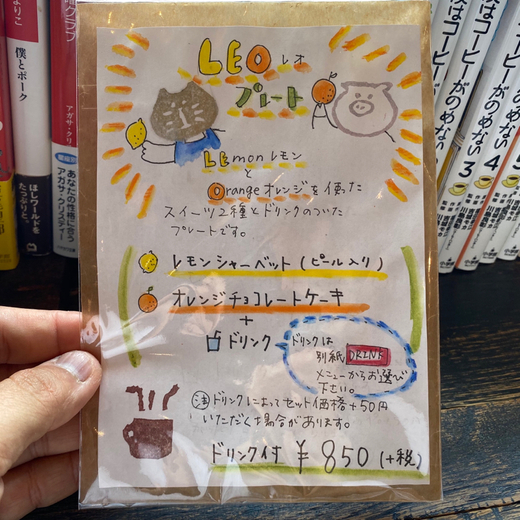 LEO レオ
プレート
LEmon レモン
と
Orange オレンジを使った
スイーツ2種とドリンクのついた
プレートです。
レモンシャーベット(ピール入り)
オレンジチョコレートケーキ
+
ドリンク
ドリンクは
別紙 DRINK
メニューからお選び
下さい。
注 ドリンクによってセット価格+50円
いただく場合があります。
ドリンク付 ¥850(+税)
僕とポーク
ほしワールドを
たっぷりと。
あなたの性格に合う
アガサ・クリスティー
はコーヒーがのめない
3
はコーヒーがのめない
4
コーヒーがのめない